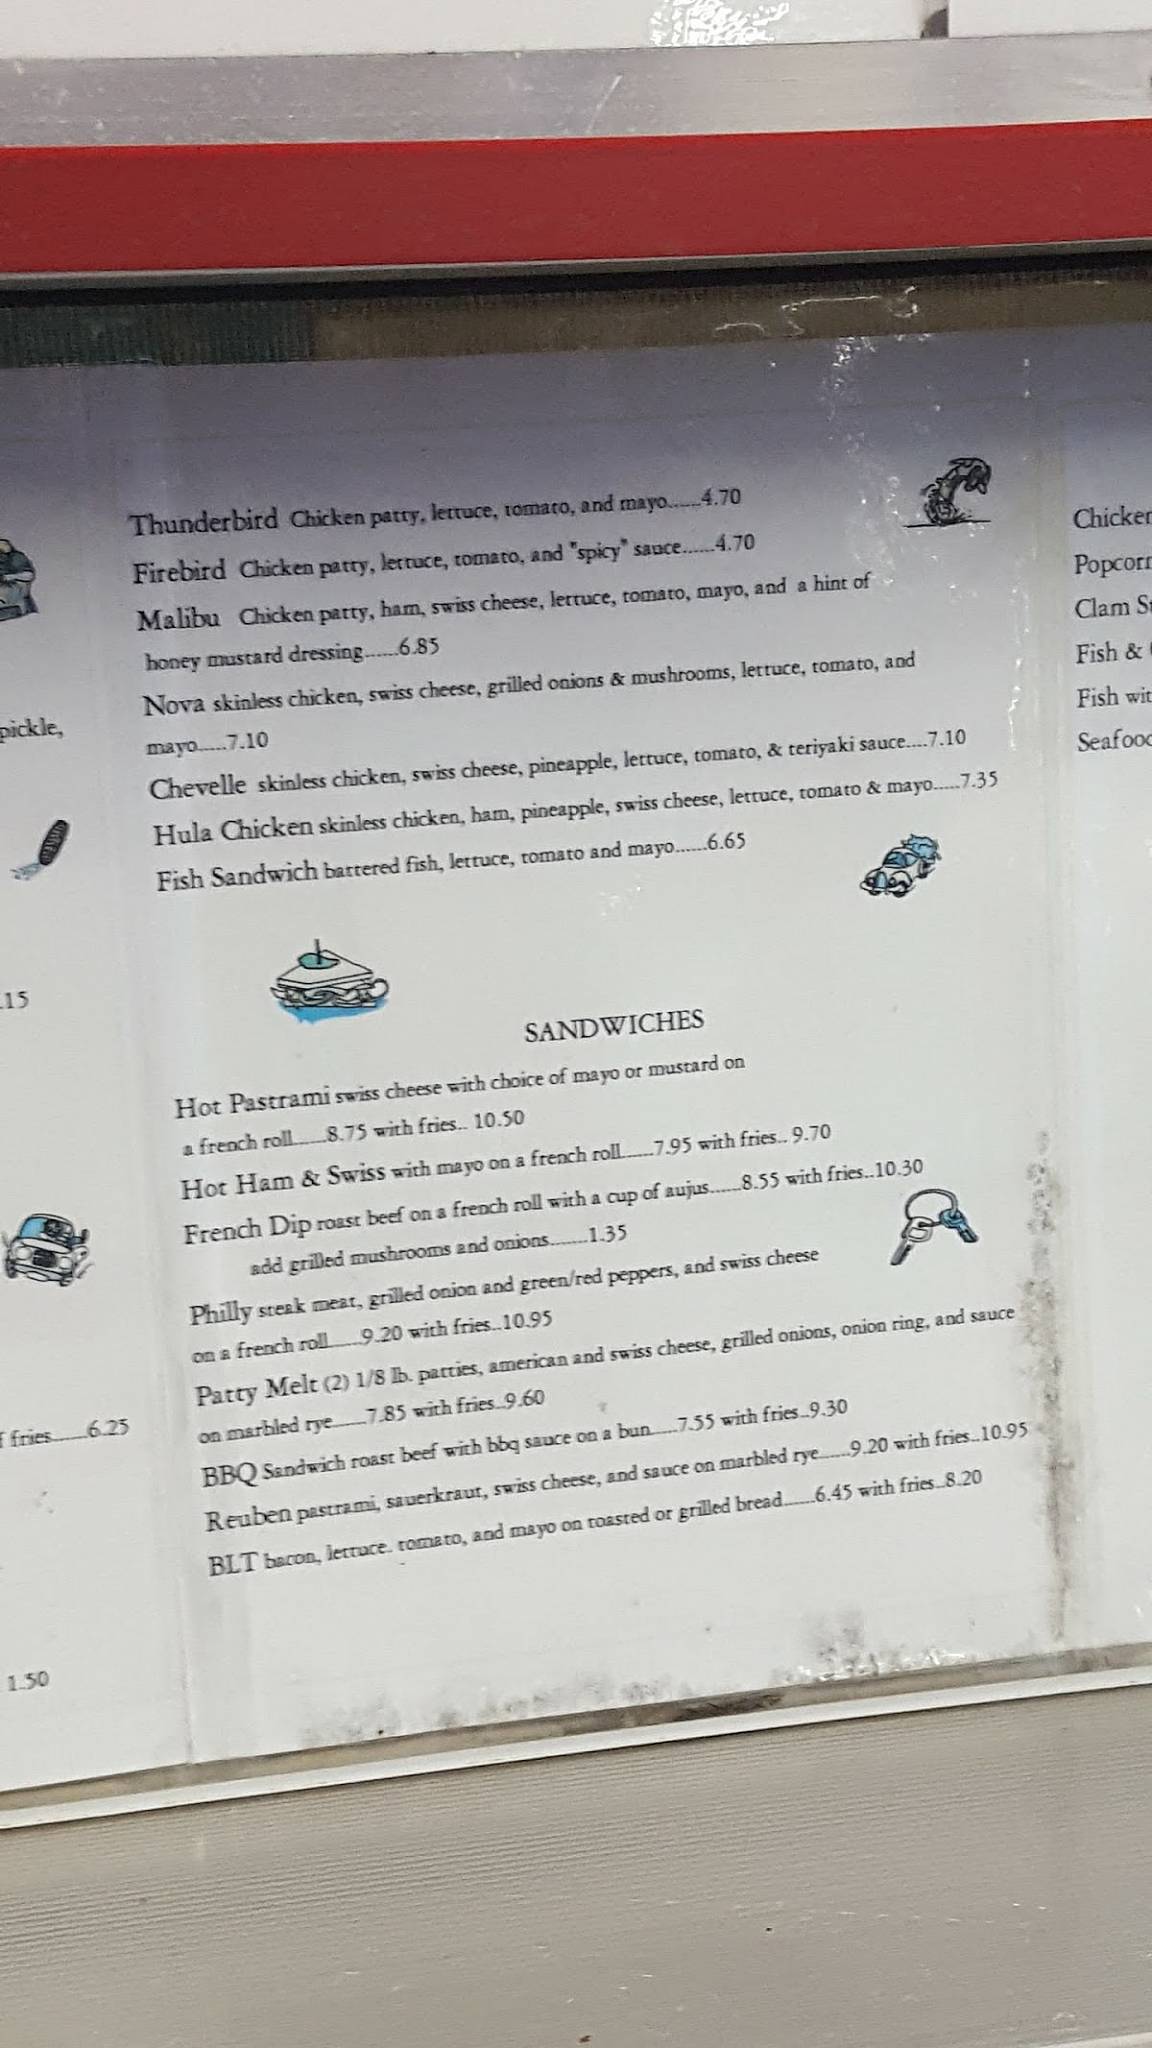 Thunderbird Chicken patty, lettuce, tomato, and mayo......4.70
Firebird Chicken patty, lettuce, tomato, and "spicy" sauce......4.70
Malibu Chicken patty, ham, swiss cheese, lettuce, tomato, mayo, and a hint of
honey mustard dressing......6.85
Nova skinless chicken, swiss cheese, grilled onions & mushrooms, lettuce, tomato, and
mayo.....7.10
Chevelle skinless chicken, swiss cheese, pineapple, lettuce, tomato, & teriyaki sauce....7.10
Hula Chicken skinless chicken, ham, pineapple, swiss cheese, lettuce, tomato & mayo.....7.35
Fish Sandwich battered fish, lettuce, tomato and mayo......6.65
SANDWICHES
Hot Pastrami swiss cheese with choice of mayo or mustard on
a french roll......8.75 with fries.. 10.50
Hot Ham & Swiss with mayo on a french roll......7.95 with fries.. 9.70
French Dip roast beef on a french roll with a cup of aujus......8.55 with fries..10.30
add grilled mushrooms and onions.......1.35
Philly steak meat, grilled onion and green/red peppers, and swiss cheese
on a french roll......9.20 with fries..10.95
Patty Melt (2) 1/8 lb. patties, american and swiss cheese, grilled onions, onion ring, and sauce
on marbled rye......7.85 with fries..9.60
BBQ Sandwich roast beef with bbq sauce on a bun.....7.55 with fries..9.30
Reuben pastrami, sauerkraut, swiss cheese, and sauce on marbled rye......9.20 with fries..10.95
BLT bacon, lettuce. tomato, and mayo on toasted or grilled bread......6.45 with fries..8.20
pickle,
.15
fries.......6.25
1.50
Chicken
Popcorn
Clam
Fish &
Fish
Seafood